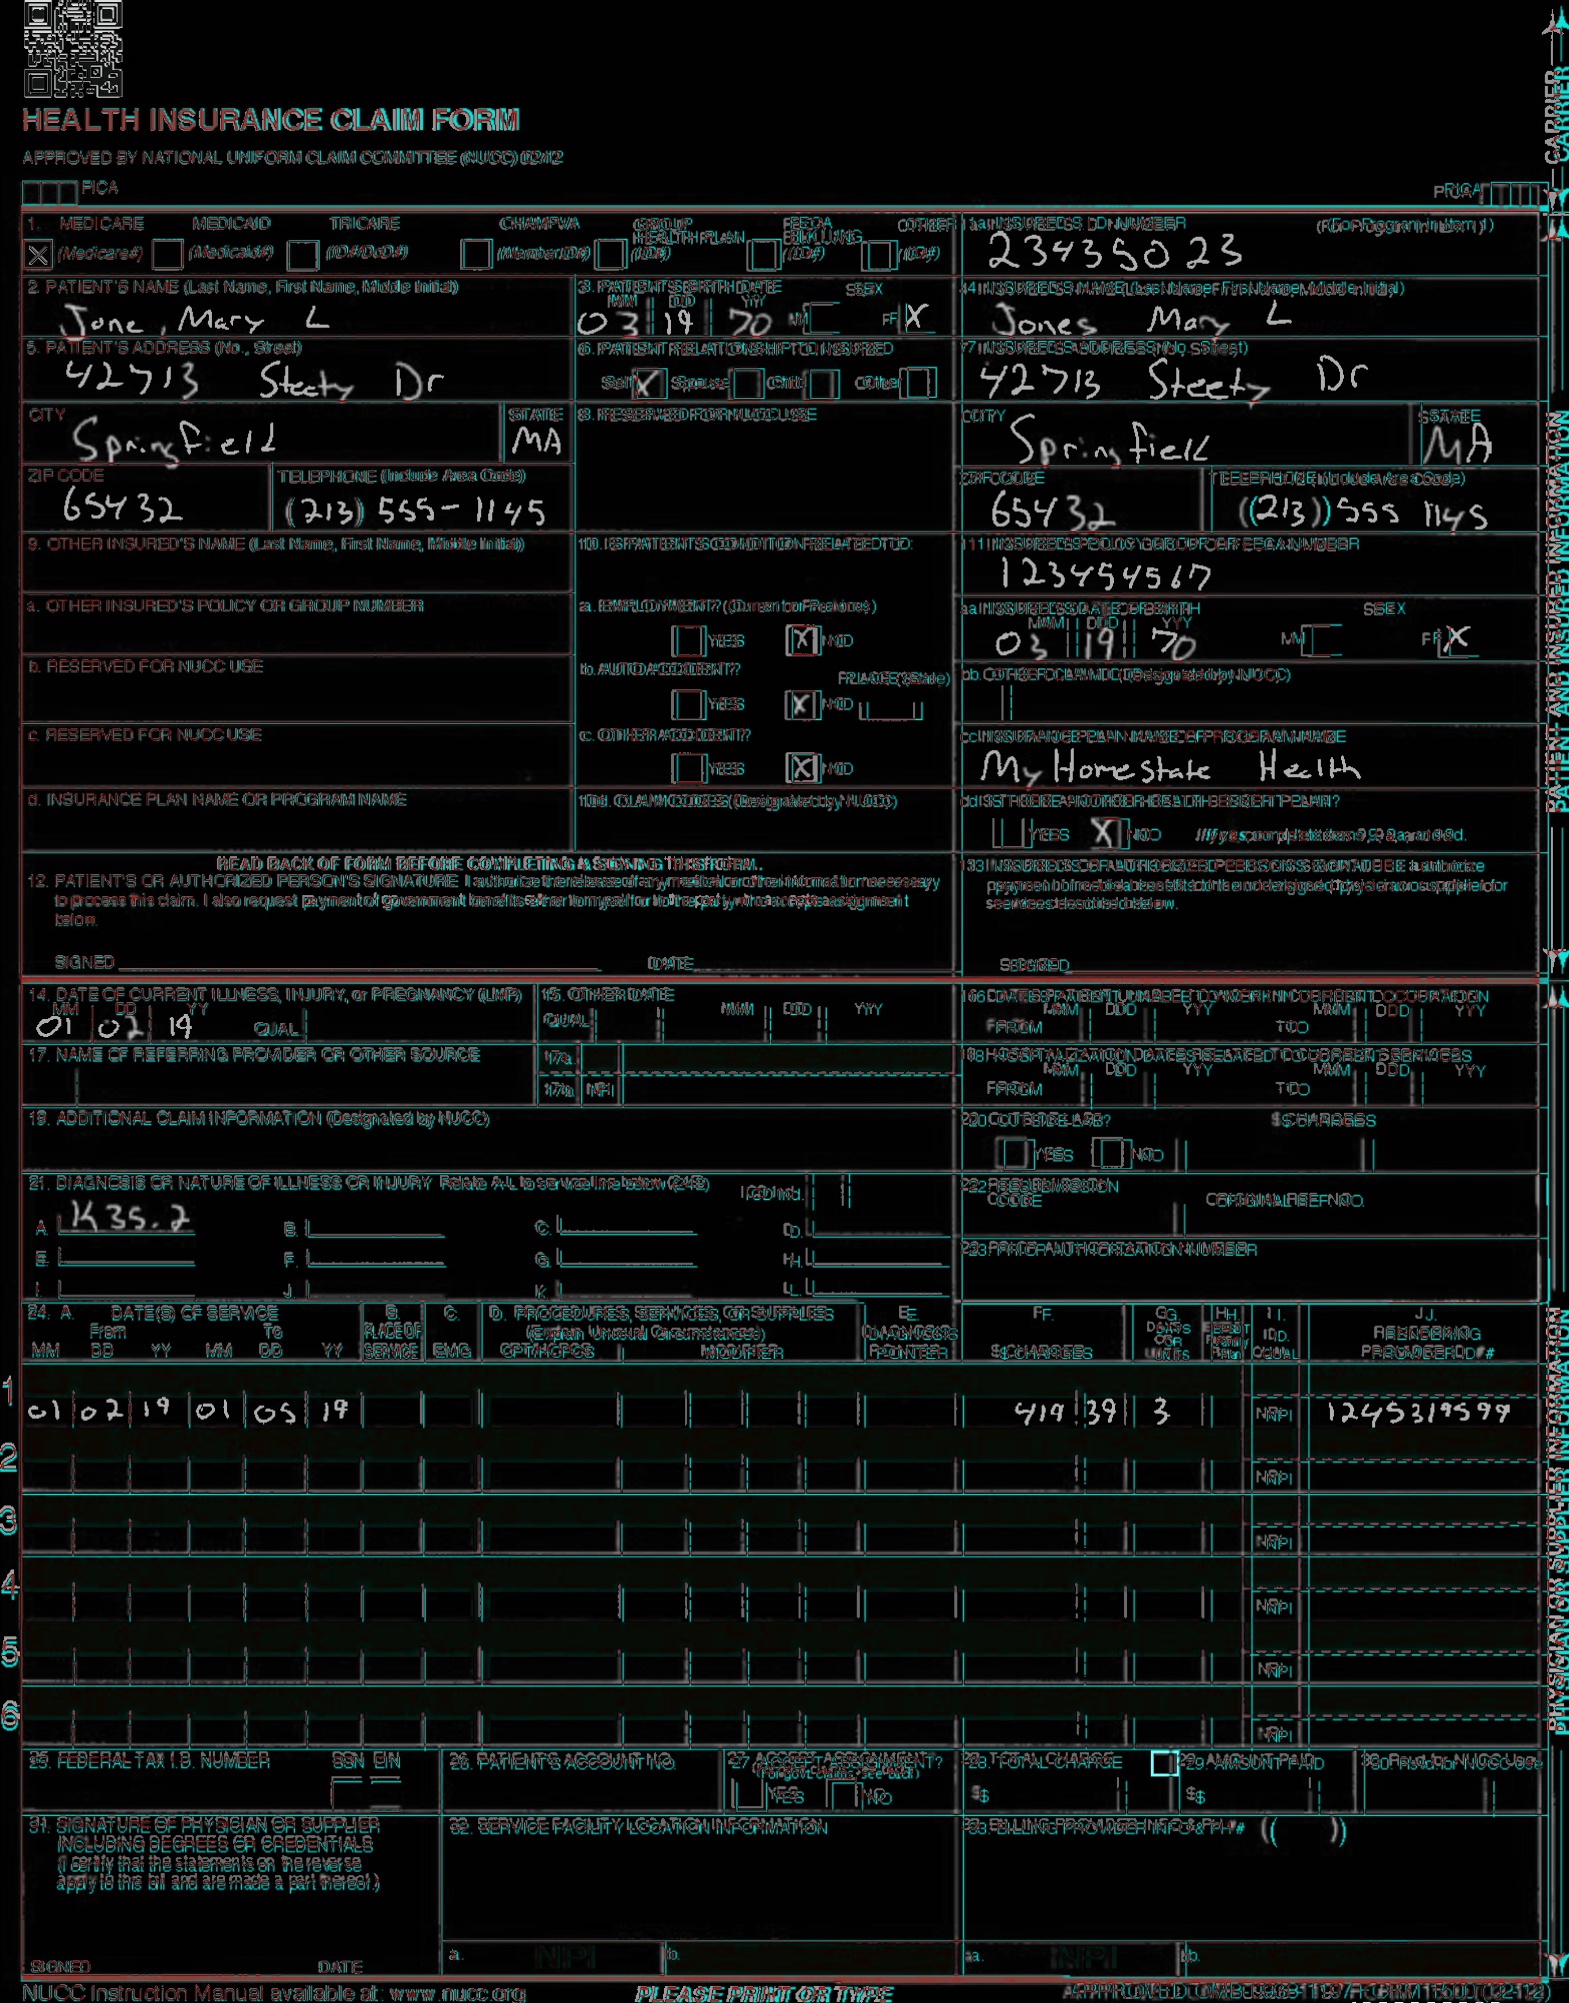 HEALTH INSURANCE CLAIM FORM
APPROVED BY NATIONAL UNIFORM CLAIM COMMITTEE (NUCC) 02/12
PICA
PICA
CARRIER
1. MEDICARE MEDICAID TRICARE CHAMPVA GROUP HEALTH PLAN FECA BLK LUNG OTHER
X (Medicare#) (Medicaid#) (ID#/DoD#) (Member ID#) (ID#) (ID#) (ID#)
1a. INSURED'S I.D. NUMBER (For Program in Item 1)
234350 23
2. PATIENT'S NAME (Last Name, First Name, Middle Initial)
Jone, Mary L
3. PATIENT'S BIRTH DATE SEX
MM DD YY
03 19 70 M F X
4. INSURED'S NAME (Last Name, First Name, Middle Initial)
Jones Mary L
5. PATIENT'S ADDRESS (No., Street)
42713 Steety Dr
6. PATIENT RELATIONSHIP TO INSURED
Self X Spouse Child Other
7. INSURED'S ADDRESS (No., Street)
42713 Steety Dr
CITY STATE
Springfield MA
8. RESERVED FOR NUCC USE
CITY STATE
Springfield MA
ZIP CODE TELEPHONE (Include Area Code)
65432 (213) 555-1145
ZIP CODE TELEPHONE (Include Area Code)
65432 (213) 555 1145
9. OTHER INSURED'S NAME (Last Name, First Name, Middle Initial)
10. IS PATIENT'S CONDITION RELATED TO:
11. INSURED'S POLICY GROUP OR FECA NUMBER
123454567
a. OTHER INSURED'S POLICY OR GROUP NUMBER
a. EMPLOYMENT? (Current or Previous)
YES X NO
a. INSURED'S DATE OF BIRTH SEX
MM DD YY
03 19 70 M F X
b. RESERVED FOR NUCC USE
b. AUTO ACCIDENT? PLACE (State)
YES X NO
b. OTHER CLAIM ID (Designated by NUCC)
c. RESERVED FOR NUCC USE
c. OTHER ACCIDENT?
YES X NO
c. INSURANCE PLAN NAME OR PROGRAM NAME
My Homestate Health
d. INSURANCE PLAN NAME OR PROGRAM NAME
10d. CLAIM CODES (Designated by NUCC)
d. IS THERE ANOTHER HEALTH BENEFIT PLAN?
YES X NO If yes, complete items 9, 9a, and 9d.
READ BACK OF FORM BEFORE COMPLETING & SIGNING THIS FORM.
12. PATIENT'S OR AUTHORIZED PERSON'S SIGNATURE I authorize the release of any medical or other information necessary
to process this claim. I also request payment of government benefits either to myself or to the party who accepts assignment
below.
SIGNED DATE
13. INSURED'S OR AUTHORIZED PERSON'S SIGNATURE I authorize
payment of medical benefits to the undersigned physician or supplier for
services described below.
SIGNED
PATIENT AND INSURED INFORMATION
14. DATE OF CURRENT ILLNESS, INJURY, or PREGNANCY (LMP)
MM DD YY
01 02 19 QUAL.
15. OTHER DATE
QUAL. MM DD YY
16. DATES PATIENT UNABLE TO WORK IN CURRENT OCCUPATION
MM DD YY MM DD YY
FROM TO
17. NAME OF REFERRING PROVIDER OR OTHER SOURCE
17a.
17b. NPI
18. HOSPITALIZATION DATES RELATED TO CURRENT SERVICES
MM DD YY MM DD YY
FROM TO
19. ADDITIONAL CLAIM INFORMATION (Designated by NUCC)
20. OUTSIDE LAB? $ CHARGES
YES NO
21. DIAGNOSIS OR NATURE OF ILLNESS OR INJURY Relate A-L to service line below (24E) ICD Ind.
A. K35.2 B. C. D.
E. F. G. H.
I. J. K. L.
22. RESUBMISSION CODE ORIGINAL REF. NO.
23. PRIOR AUTHORIZATION NUMBER
24. A. DATE(S) OF SERVICE B. C. D. PROCEDURES, SERVICES, OR SUPPLIES E. F. G. H. I. J.
From To PLACE OF SERVICE EMG (Explain Unusual Circumstances) DIAGNOSIS POINTER $ CHARGES DAYS OR UNITS EPSDT Family Plan ID. QUAL. RENDERING PROVIDER ID. #
MM DD YY MM DD YY CPT/HCPCS MODIFIER
1 01 02 19 01 05 19 419 39 3 NPI 1245319599
2 NPI
3 NPI
4 NPI
5 NPI
6 NPI
25. FEDERAL TAX I.D. NUMBER SSN EIN
26. PATIENT'S ACCOUNT NO.
27. ACCEPT ASSIGNMENT?
(For govt. claims, see back)
YES NO
28. TOTAL CHARGE
$
29. AMOUNT PAID
$
30. Rsvd for NUCC Use
31. SIGNATURE OF PHYSICIAN OR SUPPLIER
INCLUDING DEGREES OR CREDENTIALS
(I certify that the statements on the reverse
apply to this bill and are made a part thereof.)
SIGNED DATE
32. SERVICE FACILITY LOCATION INFORMATION
a. NPI b.
33. BILLING PROVIDER INFO & PH # ( )
a. NPI b.
PHYSICIAN OR SUPPLIER INFORMATION
NUCC Instruction Manual available at: www.nucc.org
PLEASE PRINT OR TYPE
APPROVED OMB-0938-1197 FORM 1500 (02-12)